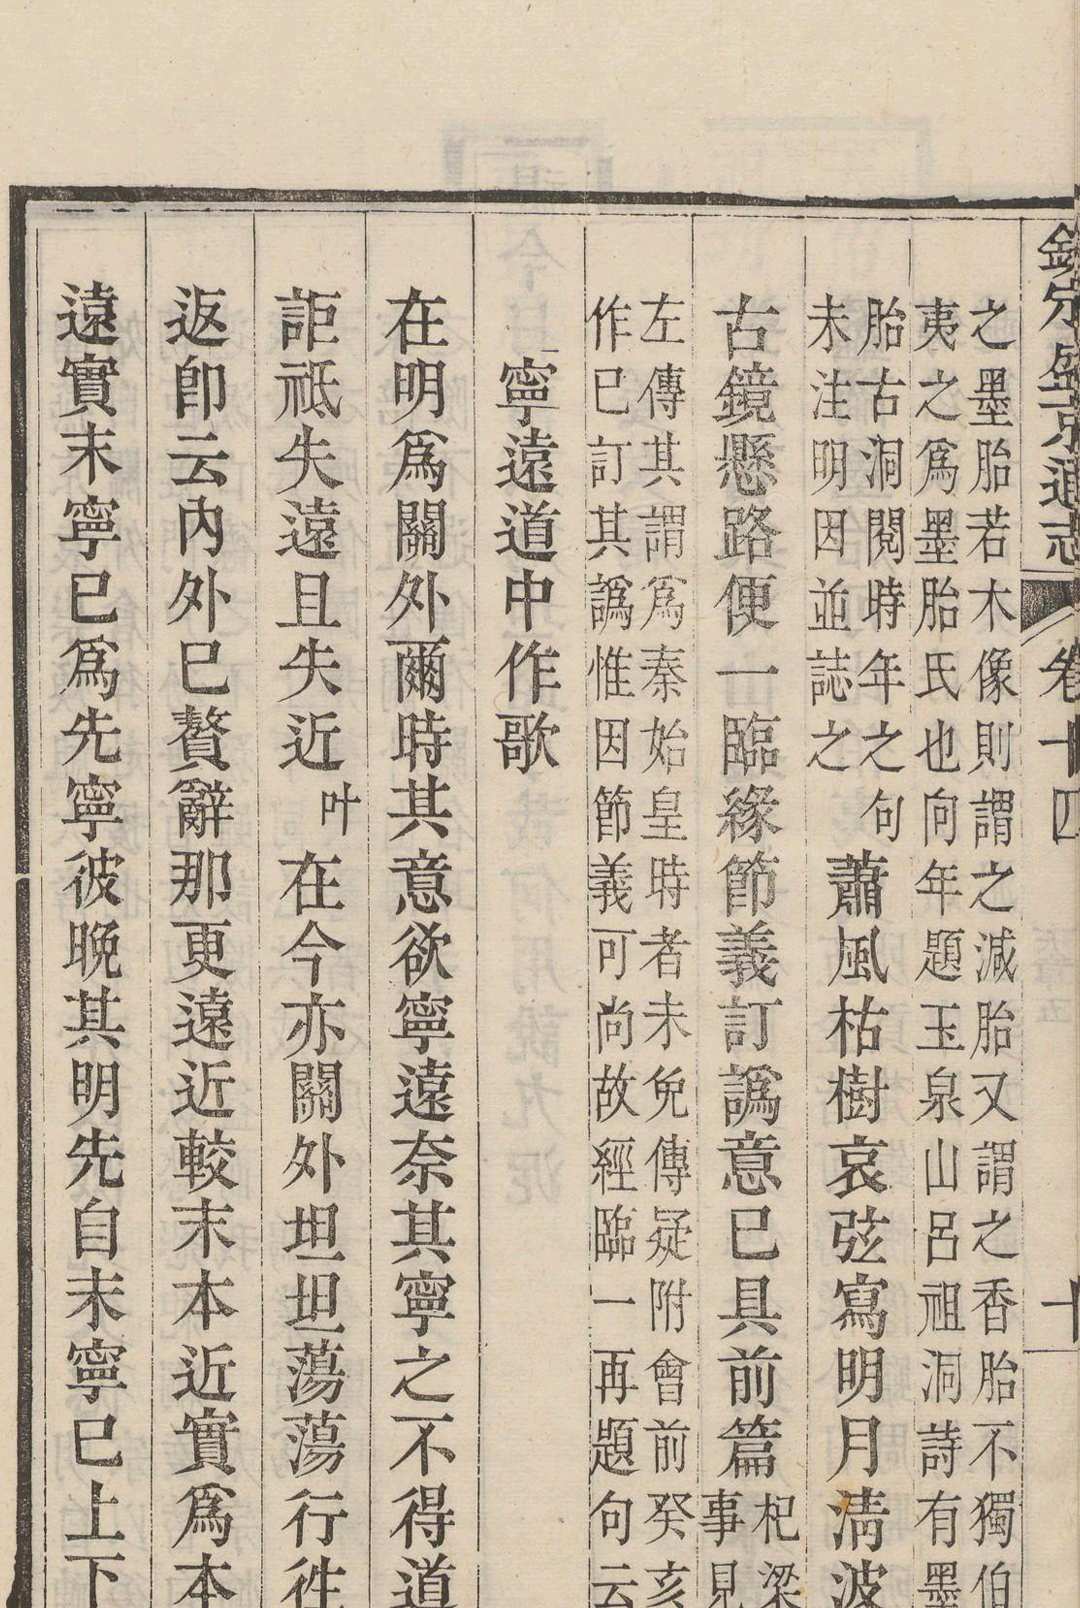 欽定盛京通志 卷十四 十
之墨胎若木像則謂之減胎又謂之香胎不獨伯
夷之爲墨胎氏也向年題玉泉山呂祖洞詩有墨
胎古洞閱時年之句
未注明因並誌之
蕭風枯樹哀弦寫明月清波
古鏡懸路便一臨緣節義訂譌意已具前篇
杞梁
事見
左傳其謂爲秦始皇時者未免傳疑附會前癸亥
作已訂其譌惟因節義可尚故經臨一再題句云
寧遠道中作歌
在明爲關外爾時其意欲寧遠奈其寧之不得道
詎祗失遠且失近叶在今亦關外坦坦蕩蕩行徃
返卽云內外已贅辭那更遠近較末本近實爲本
遠實末寧已爲先寧彼晚其明先自未寧已上下